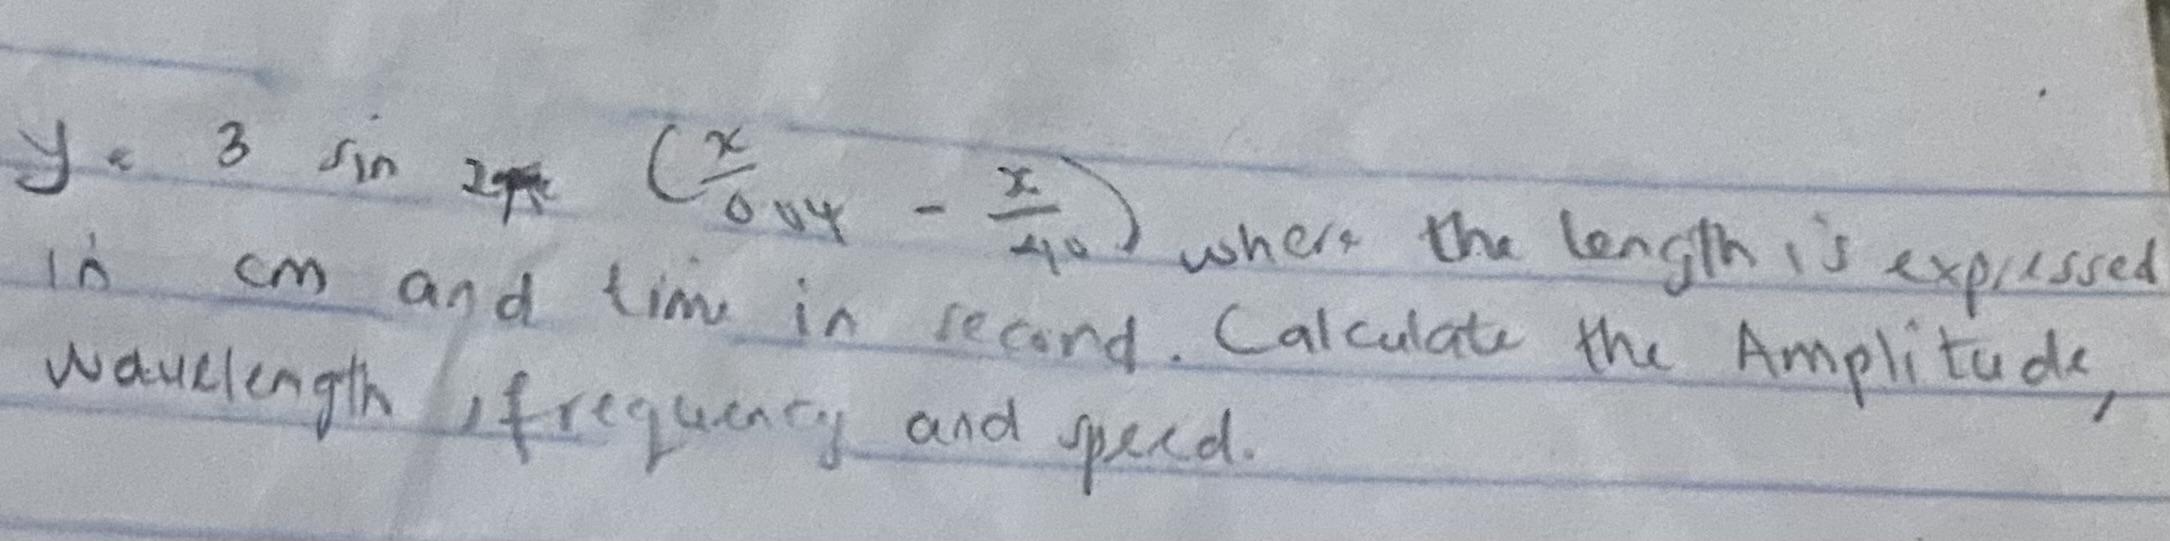 y = 3 sin 2π (x/0.04 - x/40) where the length is expressed
in cm and time in second. Calculate the Amplitude,
wavelength, frequency and speed.